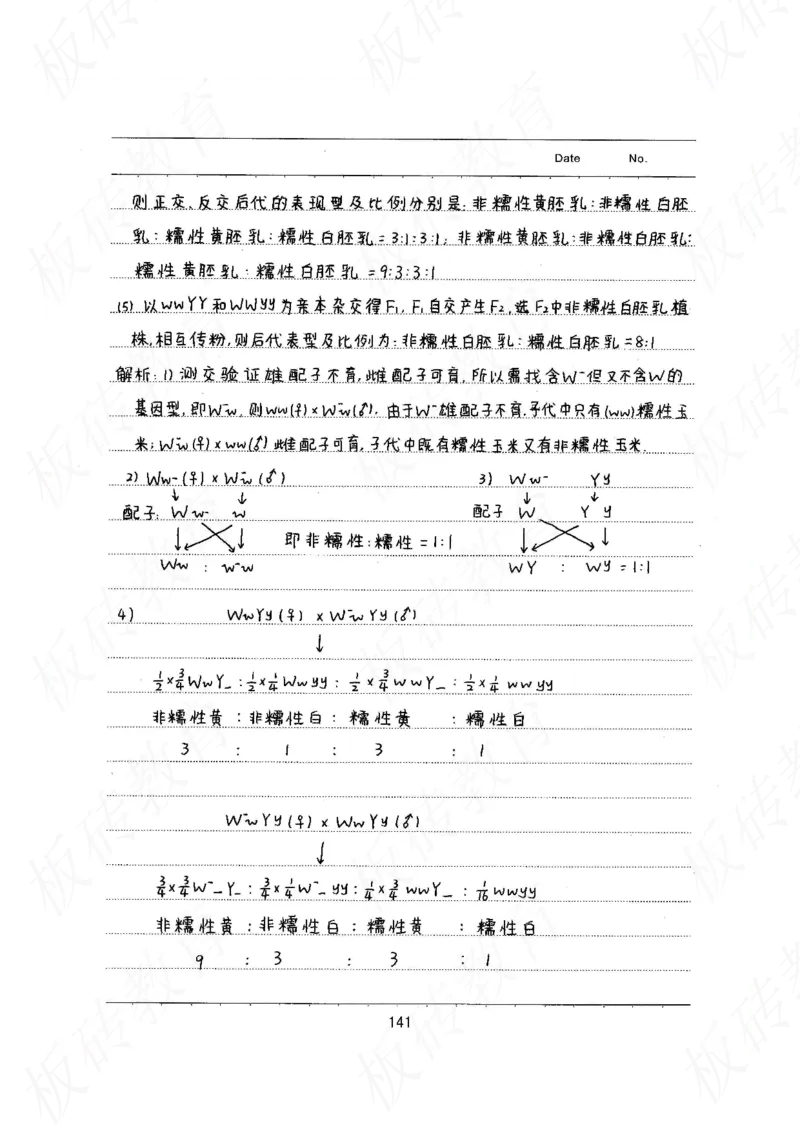 Date No.
则正交、反交后代的表现型及比例分别是:非糯性黄胚乳:非糯性白胚
乳:糯性黄胚乳:糯性白胚乳=3:1:3:1;非糯性黄胚乳:非糯性白胚乳:
糯性黄胚乳:糯性白胚乳=9:3:3:1
(5) 以wwYY和WWyy为亲本杂交得F₁, F₁自交产生F₂,选F₂中非糯性白胚乳植
株,相互传粉,则后代表型及比例为:非糯性白胚乳:糯性白胚乳=8:1
解析:1) 测交验证雄配子不育,雌配子可育,所以需找含W⁻但又不含W的
基因型,即W⁻w,则ww(♀)×W⁻w(♂).由于W⁻雄配子不育.子代中只有(ww)糯性玉
米;W⁻w(♀)×ww(♂)雌配子可育,子代中既有糯性玉米又有非糯性玉米.
2) Ww-(♀)×W⁻w(♂) 3) Ww- Yy
↓ ↓ ↓ ↓
配子: W w- w 配子 W Y y
即非糯性:糯性=1:1
Ww : w⁻w WY : Wy =1:1
4) WwYy(♀) × W⁻wYy(♂)
↓
½×¾WwY_ : ½×¼Wwyy : ½×¾wwY_ : ½×¼ wwyy
非糯性黄 : 非糯性白 : 糯性黄 : 糯性白
3 : 1 : 3 : 1
W⁻wYy(♀) × WwYy(♂)
↓
¾×¾W⁻_Y_ : ¾×¼W⁻_yy : ¼×¾ wwY_ : 1/16 wwyy
非糯性黄 : 非糯性白 : 糯性黄 : 糯性白
9 : 3 : 3 : 1
141
板砖教育